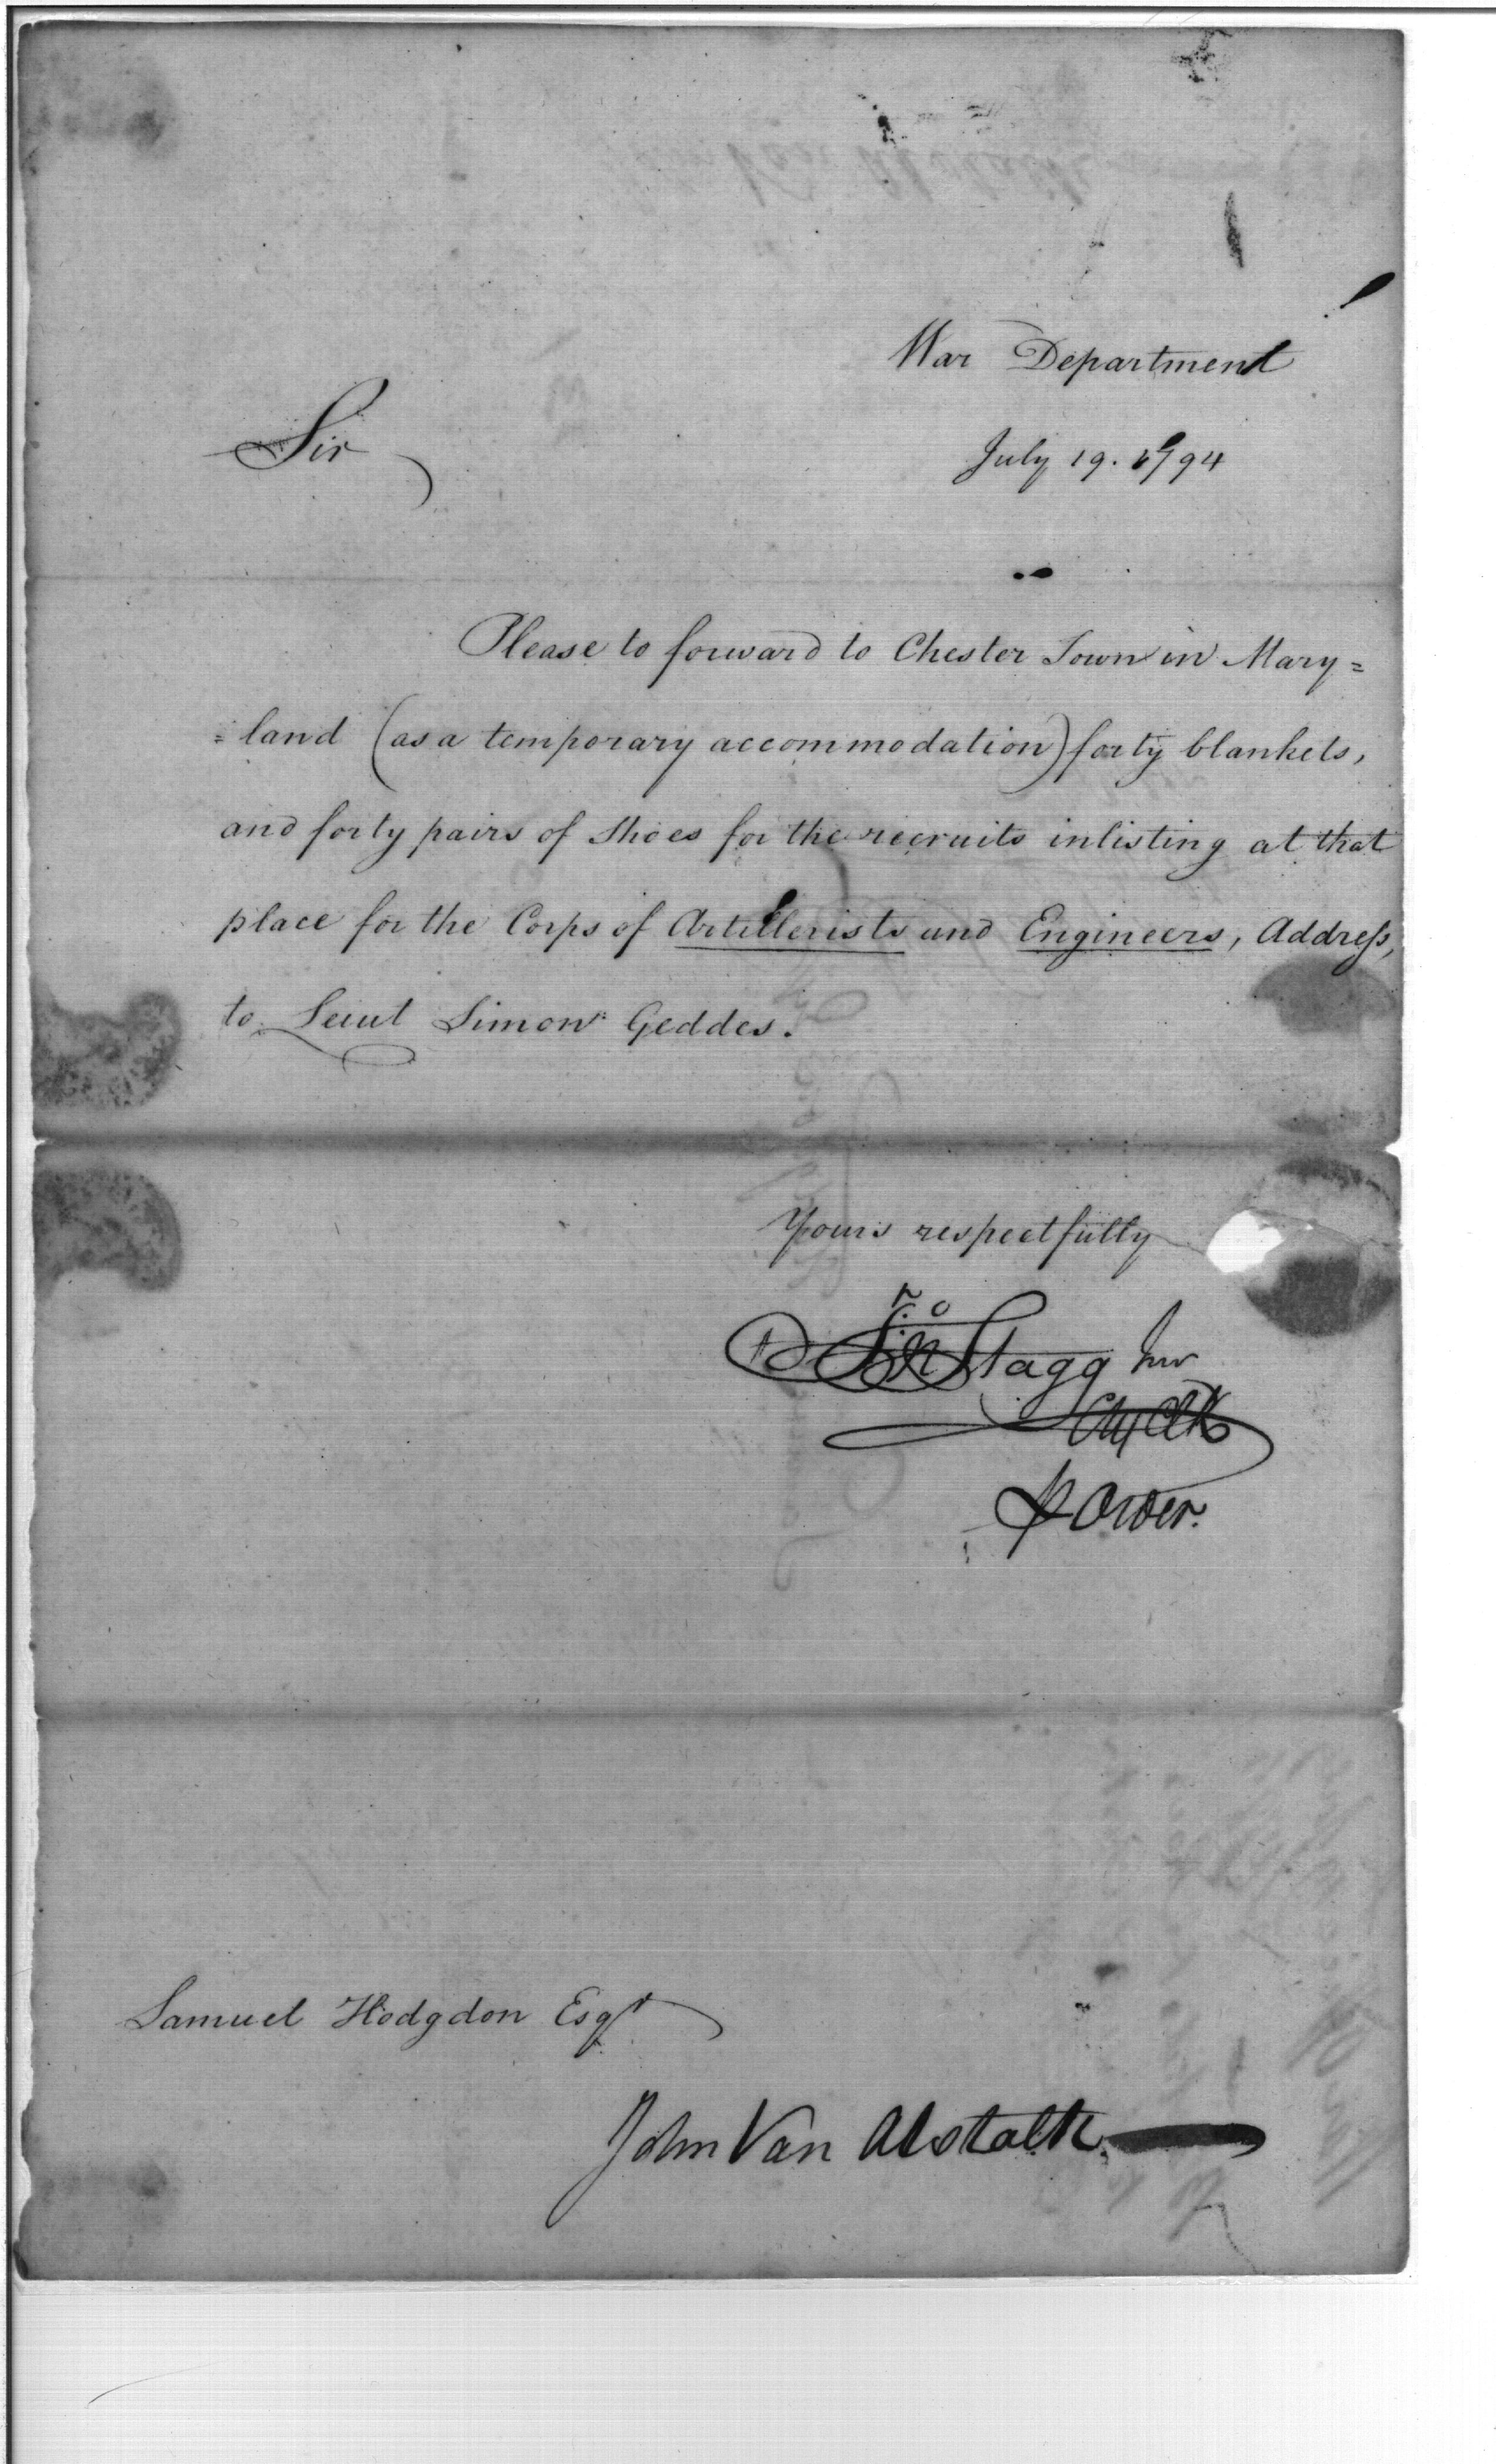 War Department
July 19. 1794
Sir
Please to forward to Chester Town in Mary=
=land (as a temporary accommodation) forty blankets,
and forty pairs of Shoes for the recruits inlisting at that
place for the Corps of Artillerists and Engineers, Address,
to Leiut Simon Geddes.
Yours respectfully
Jno Stagg Junr
Chf Clk
⅌ Order.
Samuel Hodgdon Esqr
John Van Alstalk